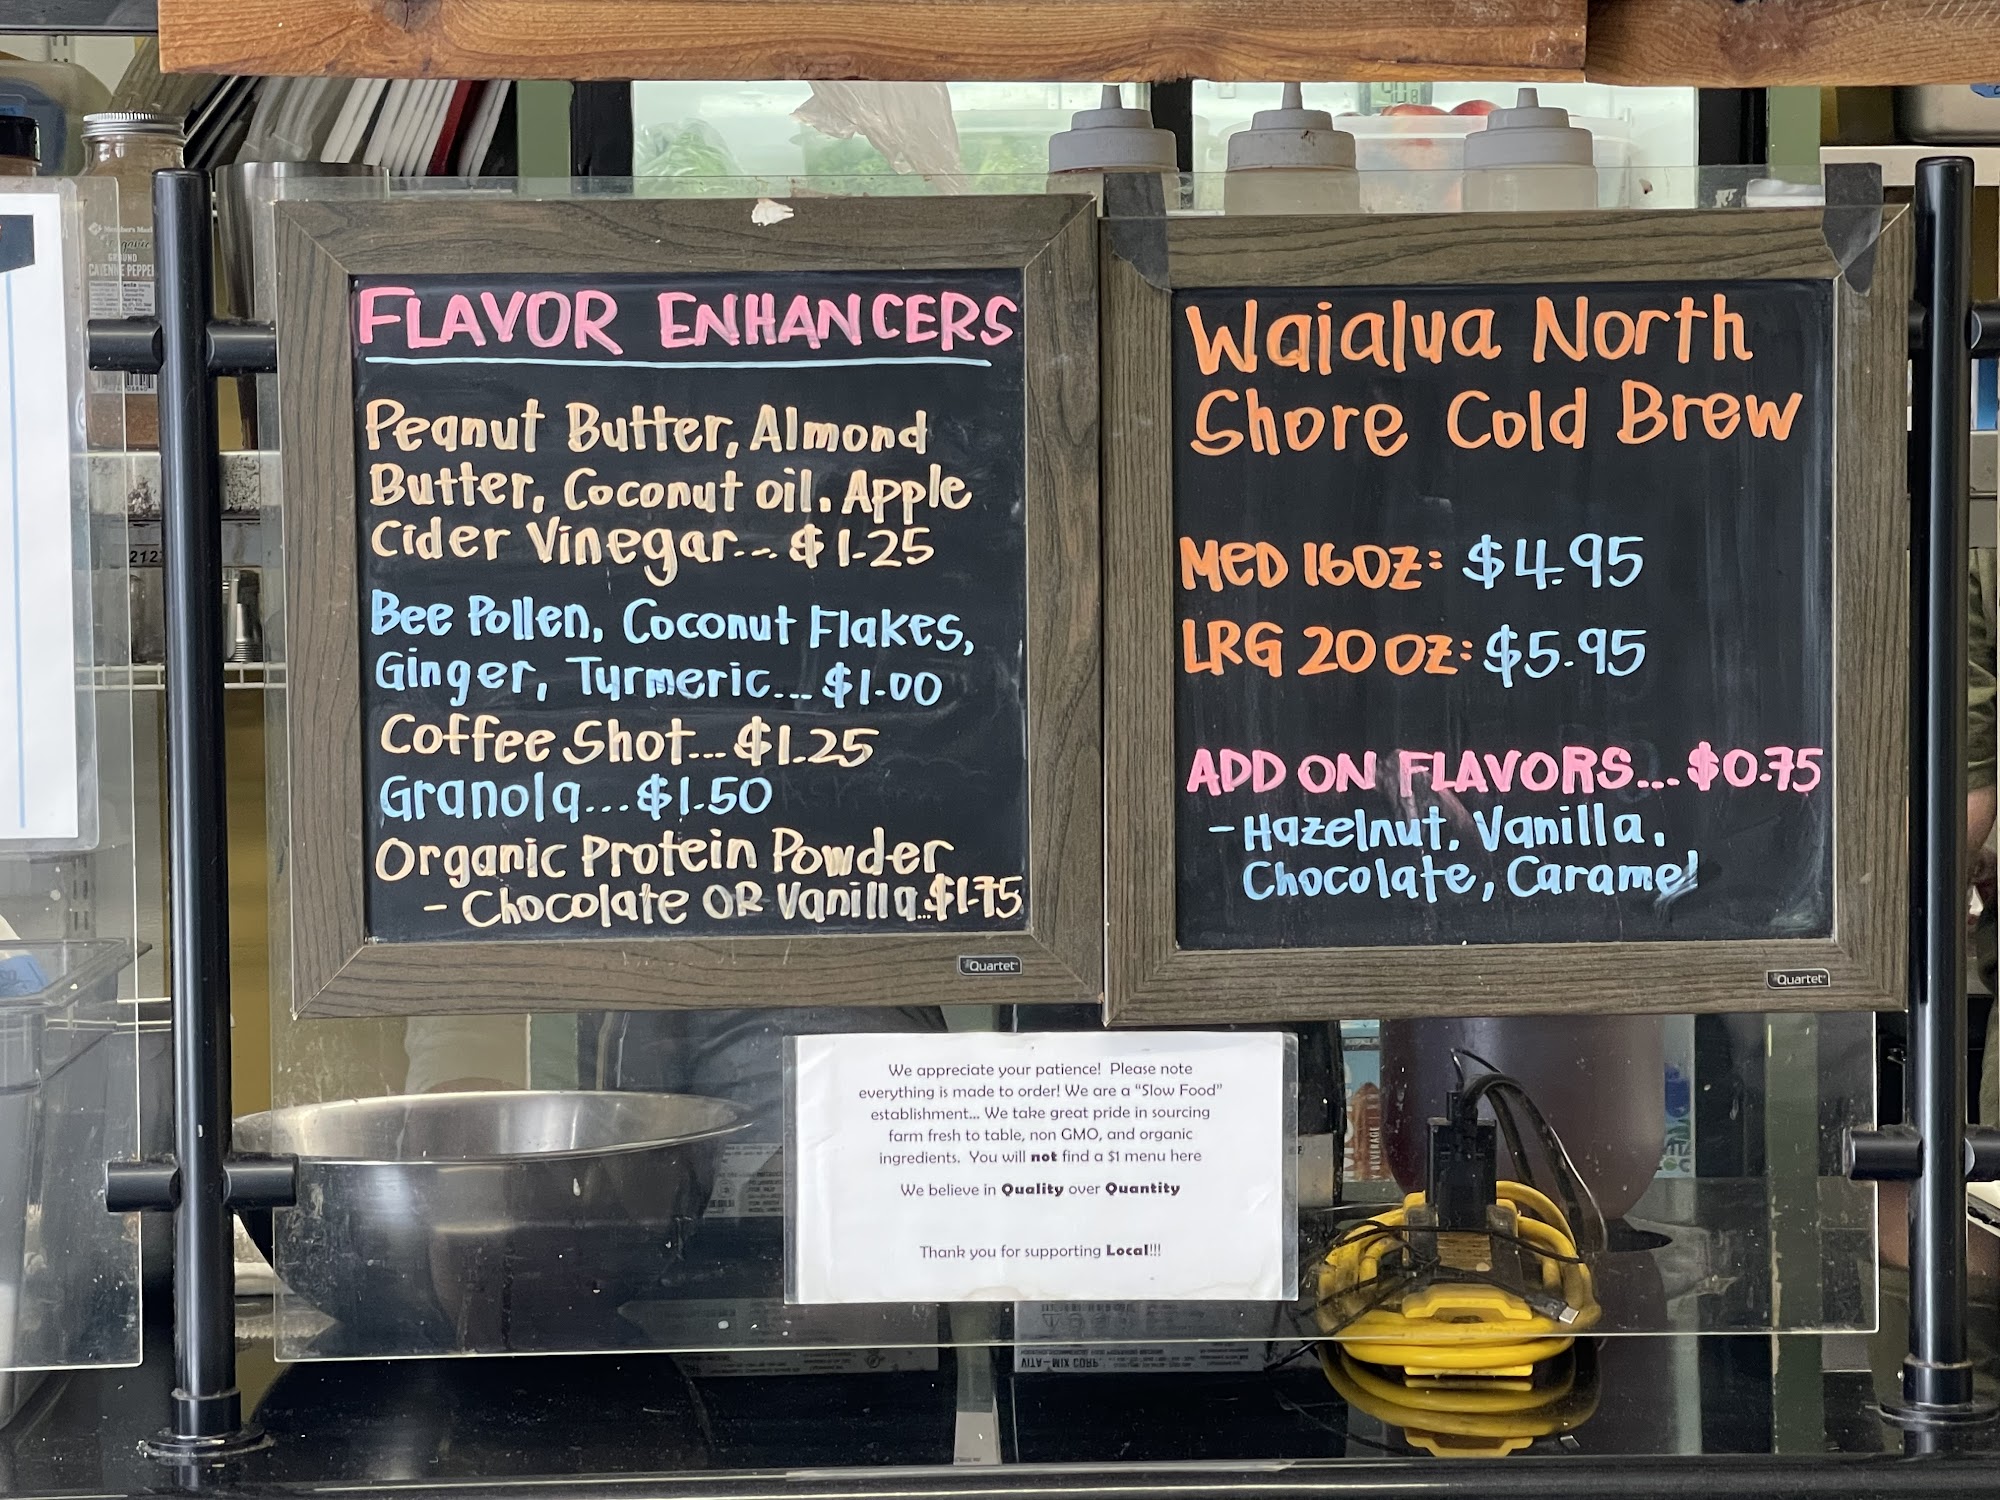 FLAVOR ENHANCERS
Peanut Butter, Almond
Butter, Coconut oil, Apple
Cider Vinegar... $1.25
Bee Pollen, Coconut Flakes,
Ginger, Turmeric... $1.00
Coffee Shot... $1.25
Granola... $1.50
Organic Protein Powder
- Chocolate OR Vanilla... $1.75
Quartet
Waialua North
Shore Cold Brew
MED 16oz: $4.95
LRG 20oz: $5.95
ADD ON FLAVORS... $0.75
- Hazelnut, Vanilla,
Chocolate, Caramel
Quartet
We appreciate your patience! Please note
everything is made to order! We are a "Slow Food"
establishment... We take great pride in sourcing
farm fresh to table, non GMO, and organic
ingredients. You will not find a $1 menu here
We believe in Quality over Quantity
Thank you for supporting Local!!!
Member's Mark
Organic
GROUND
CAYENNE PEPPE
212
VITA-MIX CORP.